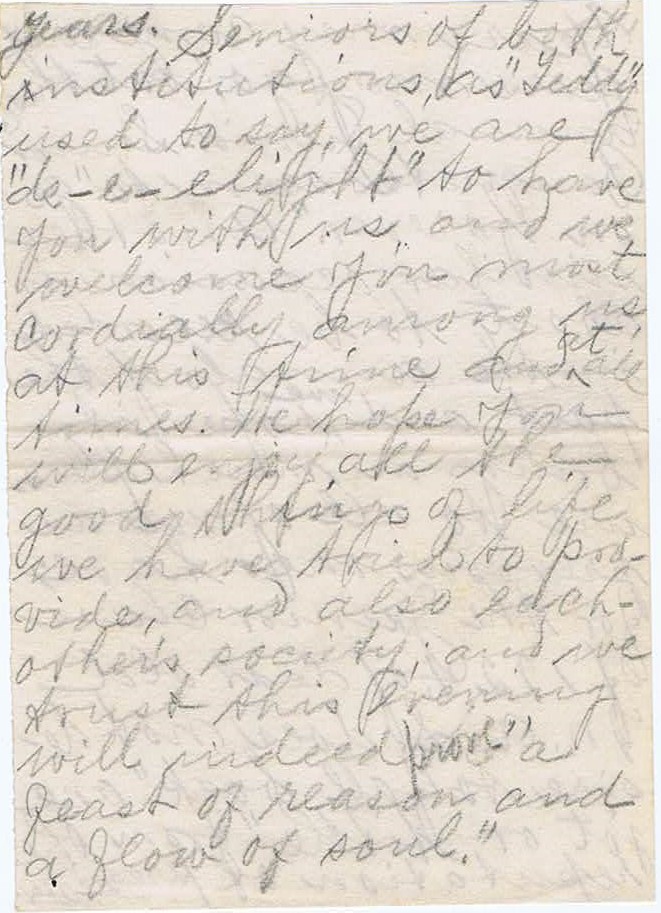 years. Seniors of both
institutions, as "Teddy"
used to say, we are
"de-e-elight" to have
you with us and we
welcome you most
cordially among us
at this time and at all
times. We hope you
will enjoy all the
good things of life
we have tried to pro-
vide, and also each
other's society; and we
trust this evening
will indeed prove "a
feast of reason and
a flow of soul."